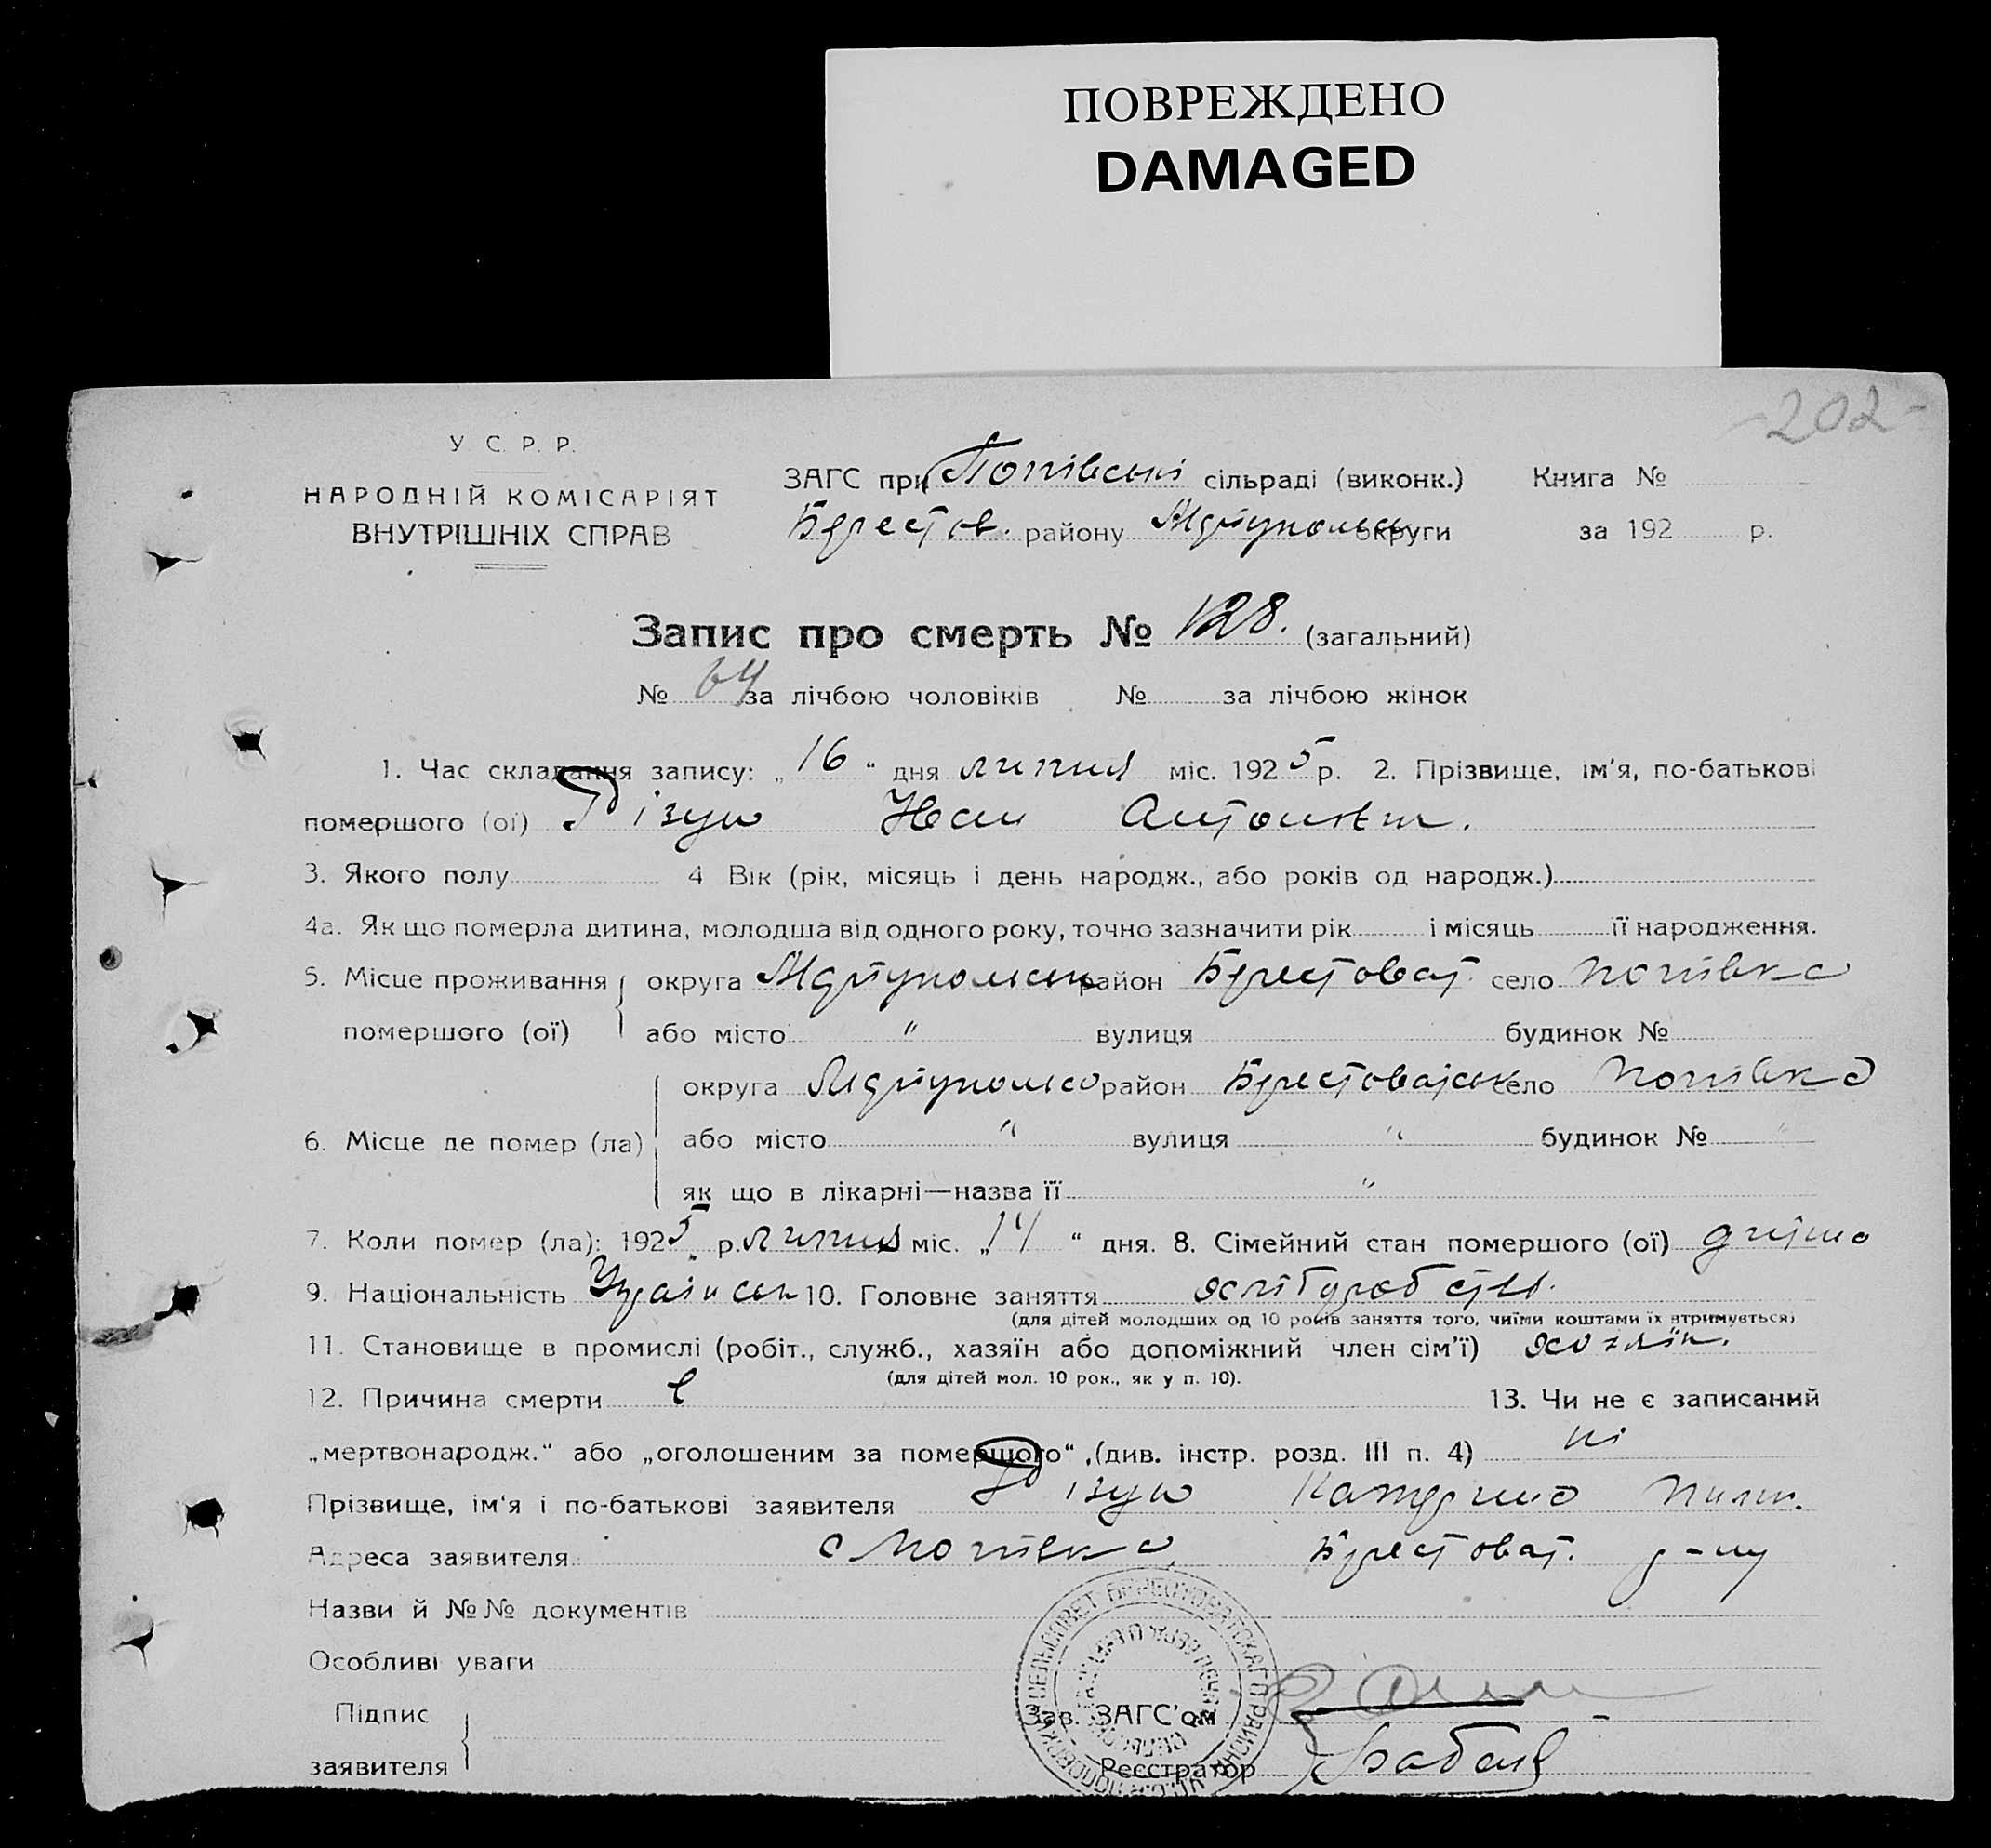 ПОВРЕЖДЕНО
DAMAGED
-202-
У С. Р. Р.
НАРОДНІЙ КОМІСАРІЯТ
ВНУТРІШНІХ СПРАВ
ЗАГС при Попівські сільраді (виконк.) Книга №
Берестов. району округи за 192 р.
Запис про смерть № 128. (загальний)
№ 64 за лічбою чоловіків № за лічбою жінок
1. Час складання запису: „ 16 “ дня липня міс. 1925 р. 2. Прізвище, ім'я, по-батькові
помершого (ої) Різун Іван Антонов.
3. Якого полу 4 Вік (рік, місяць і день народж., або років од народж.)
4а. Як що померла дитина, молодша від одного року, точно зазначити рік і місяць її народження.
5. Місце проживання округа район Берестоват. село Попівка
помершого (ої) або місто " вулиця будинок №
округа район село Попівка
6. Місце де помер (ла) або місто " вулиця " будинок № "
як що в лікарні—назва її "
7. Коли помер (ла): 1925 р. липня міс. „ 14 “ дня. 8. Сімейний стан помершого (ої)
9. Національність 10. Головне заняття хлібуробств.
(для дітей молодших од 10 років заняття того, чиїми коштами їх втримується)
11. Становище в промислі (робіт., служб., хазяїн або допоміжний член сім'ї) хозяїн.
(для дітей мол. 10 рок., як у п. 10).
12. Причина смерти 13. Чи не є записаний
„мертвонародж.“ або „оголошеним за помершого“, (див. інстр. розд. III п. 4) ні
Прізвище, ім'я і по-батькові заявителя Різун Катерина
Адреса заявителя с Попівка, Берестоват. р-ну
Назви й №№ документів
Особливі уваги
Підпис
заявителя
Зав. ЗАГС'ом
Реєстратор